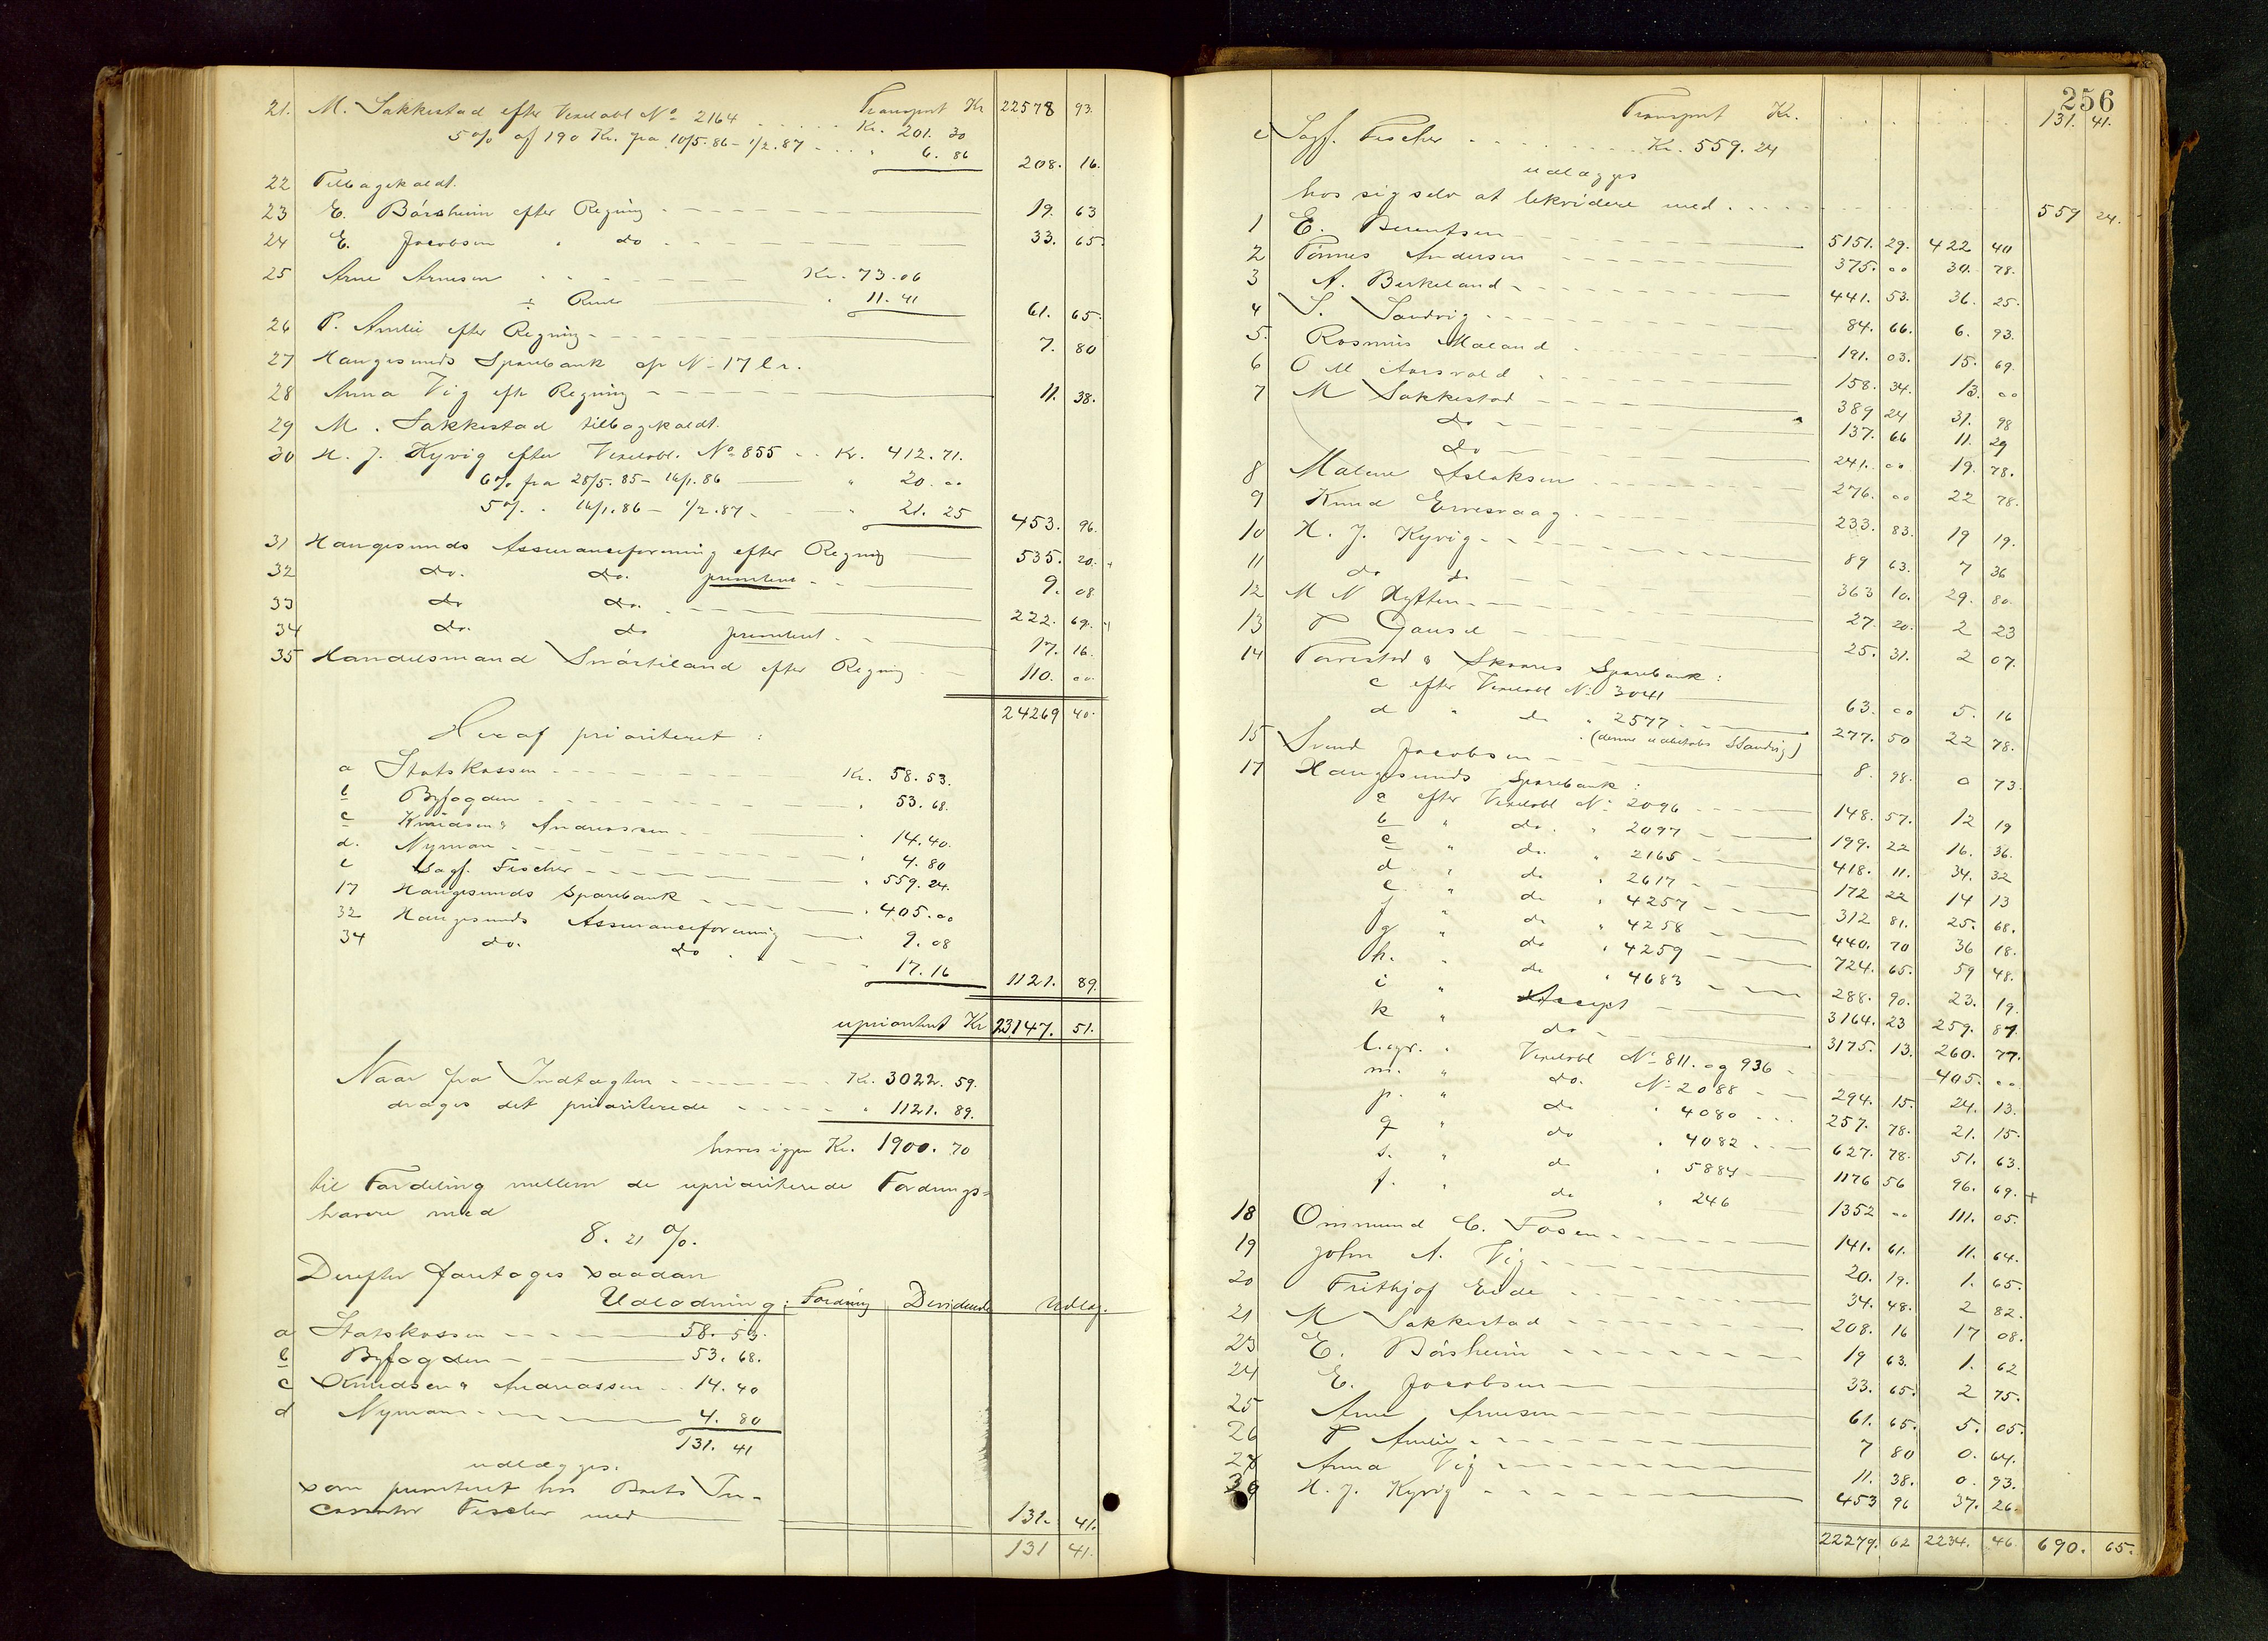 Transport Kr 22578 93.
21. M. Sakkestad efter Vexelobl No 2164 . . . . . Kr. 201. 30
5% af 190 Kr. fra 10/5.86 - 1/2.87 - - . . " 6. 86 208. 16.
22 Tilbagekaldt.
23 E. Børsheim efter Regning - - - - 19. 63
24 E. Jacobsen " do - - - 33. 65
25 Arne Arnesen - - - - Kr. 73.06
÷ Rente " 11. 41 61. 65.
26 P. Amlie efter Regning - - - - 7. 80
27 Haugesunds Sparebank op No 17 l.r.
28 Anna Vig eftr Regning - - - 11. 38.
29 M. Sakkestad tilbagekaldt.
30 H. J. Kyvig efter Vexelobl. No 855 - - Kr. 412.71.
6% fra 28/5.85 - 16/1.86 " 20.00
5% " 16/1.86 - 1/2.87 - - " 21. 25 453. 96.
31 Haugesunds Assuranceforening efter Regning 535. 20.
32 do. do. prioritert - - 9. 08
33 do do. - - - 222. 69.
34 do. do prioritert - - 17. 16.
35 Handelsmand Snørtiland efter Regning - - 110. 00.
24269 40.
Heraf prioriteret :
a Statskassen - - - - Kr. 58.53.
b Byfogden - - - - " 53.68.
c Knudsen & Andreassen - - " 14.40.
d. Nyman - - - - " 4.80
e Sagf. Fischer - - - - " 559.24.
17 Haugesunds Sparebank - - - " 405.00
32 Haugesunds Assuranceforening - - " 9.08
34 do. do - - - " 17.16 1121. 89.
uprioritert Kr 23147. 51.
Naar fra Indtægten - - - - - Kr. 3022. 59.
drages det prioriterede - - - - " 1121. 89.
haves igjen Kr. 1900. 70
til Fordeling mellem de uprioriterede Fordrings-
havere med
8. 21 %.
Derefter foretages saadan
Udlodning: Fordring Dividende Udlæg.
a Statskassen - - - - 58. 53.
b Byfogden - - 53. 68.
c Knudsen & Andreassen - - 14. 40
d Nyman - - - 4. 80
131. 41
udlægges.
som prioriteret hos Boets In-
cassator Fischer med 131. 41.
131 41.
256
Transport Kr. . . . . . . . 131. 41.
e Sagf. Fischer . . . . . . . Kr. 559. 24
udlægges
hos sig selv at lekvidere med . . . . . . 559 24.
1 E. Berentsen - - - 5151. 29. 422 40
2 Tønnes Andersen - - - 375. 00 30. 78.
3 A. Berkeland - - - 441. 53. 36. 25.
4 S. Sandvig - - - 84. 66. 6. 93.
5. Rasmus Maland - - - 191. 03. 15. 69.
6 O M Aarsvold - - - 158. 34. 13. 00
7 M Sakkestad - - - 389 24 31. 98
do - - - 137. 66 11. 29
do - - - 241. 00 19. 78.
8 Malene Aslaksen - - - 276. 00 22 78.
9 Knud Ervesvaag - - - 233. 83. 19 19.
10 H. J. Kyvig - - - 89 63. 7 36
11 do do - - - 363 10. 29. 80.
12 M N Hytten - - - 27. 20. 2 23
13 P Gausel - - - 25. 31. 2 07.
14 Torvestad & Skaares Sparebank :
c efter Vexelobl No 3041 63. 00 5. 16
d " do " 2577 - - - 277. 50 22 78.
(denne udbetales S Sandvig)
15 Svend Jacobsen - - 8. 98. 0 73.
17 Haugesunds Sparebank :
a efter Vexelobl No 2096 - - - 148. 57. 12 19
b " do. " 2097 - - 199. 22 16. 36.
c " do. " 2165 - - 418. 11. 34. 32
d " do " 2617 - - 172 22 14 13
e. " do " 4257 - - 312 81. 25. 68.
f " do " 4258 - - 440. 70 36 18.
g " do " 4259 - - 724. 65. 59 48.
h. " do " 4683 - - 288. 90. 23. 19.
i " Accept - - 3164. 23 259. 87.
k " do - - 3175. 13. 260. 77.
l. opr. " Vexelobl No 811. og 936 - - - 405. 00
m. " do. No 2088 - - 294. 15. 24. 13.
p. " do " 4080 - - 257. 78. 21. 15.
q " do " 4082 - - 627. 78. 51. 63.
s. " do " 5884 - - 1176 56 96. 69. +
f. " do " 246 1352 00 111. 05.
18 Ommund C. Fosen - - - 141. 61. 11. 64.
19 John A. Vig - - - 20. 19. 1. 65.
20 Frithjof Eide - - - 34. 48. 2 82.
21 M Sakkestad - - - 208. 16 17 08.
23 E. Børsheim - - - 19 63. 1. 62
24 E. Jacobsen - - - 33. 65. 2 75.
25 Arne Arnesen - - - 61. 65. 5. 05.
26 P Amlie - - - 7 80 0. 64.
28 Anna Vig - - - 11. 38. 0. 93.
30 H. J. Kyvig - - - 453 96 37. 26.
22279. 62 2234. 46. 690. 65.